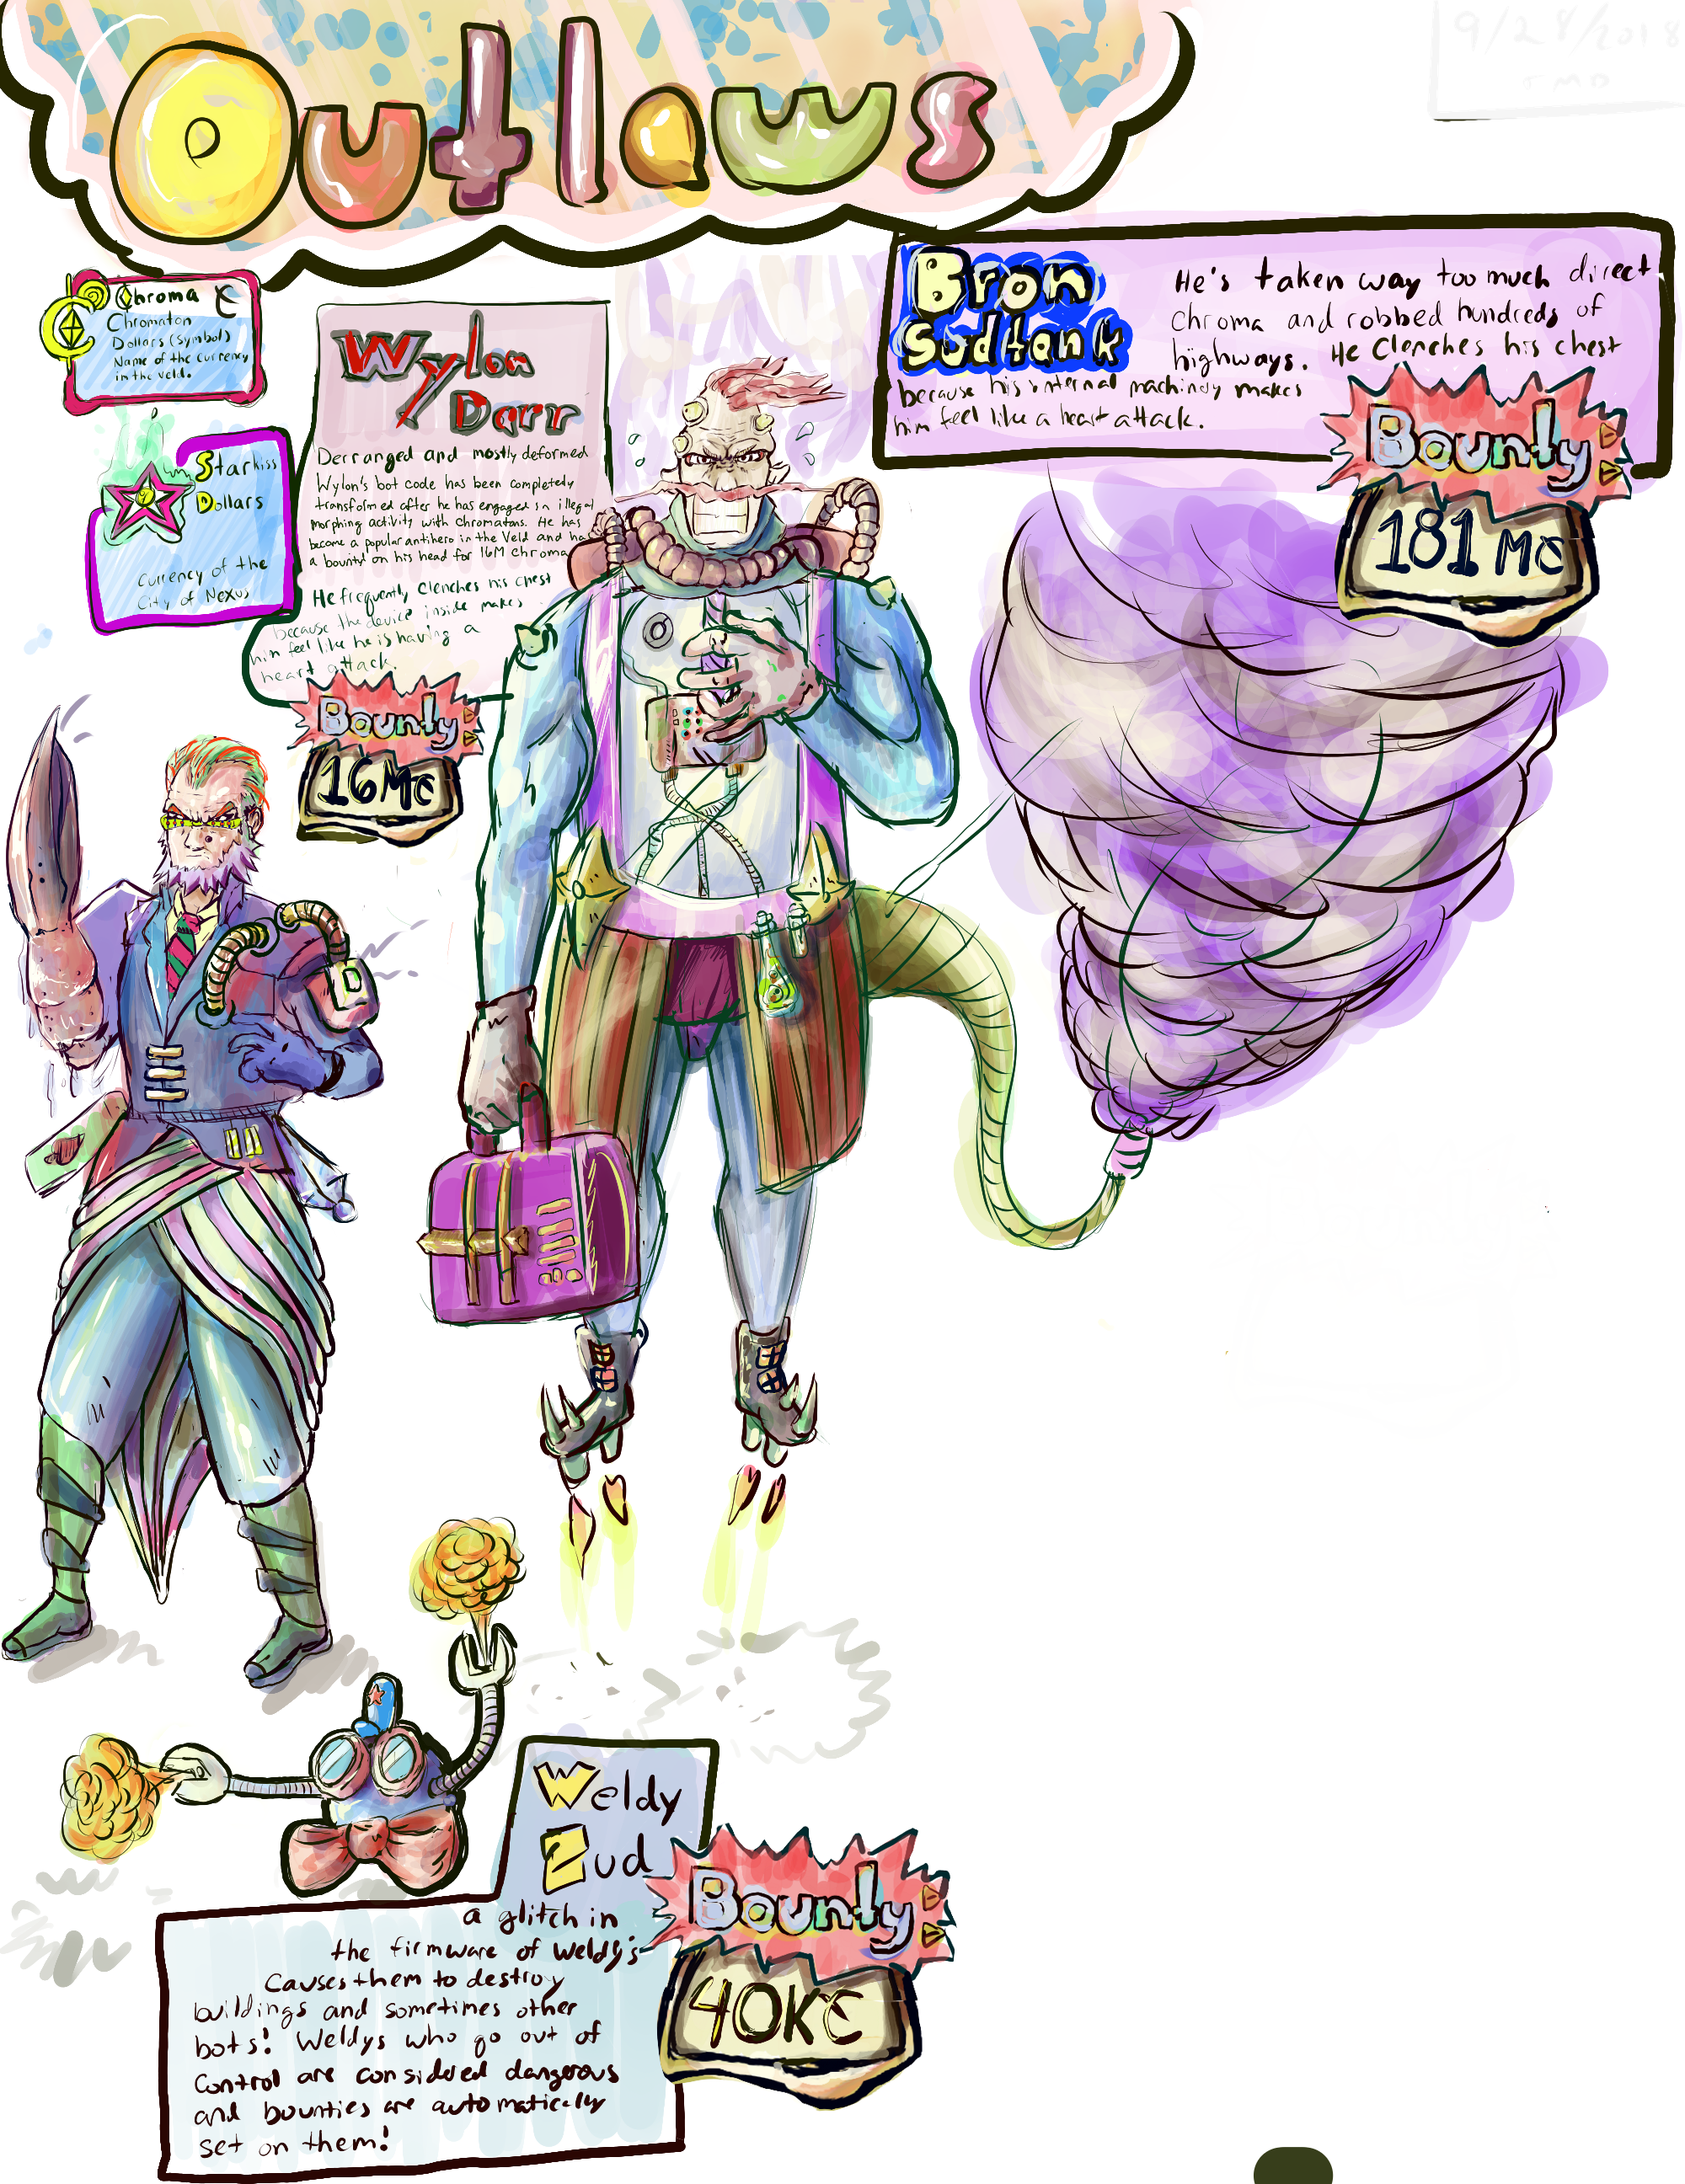 Outlaws
9/28/2018
TMD
Chroma
Chromaton
Dollars (symbol)
Name of the currency
in the Veld.
Starkiss
Dollars
Currency of the
City of Nexus
Wylon
Darr
Derranged and mostly deformed
Wylon's bot code has been completely
transformed after he has engaged in illegal
morphing activity with chromatons. He has
become a popular antihero in the Veld and has
a bounty on his head for 16M Chroma
He frequently clenches his chest
because the device inside makes
him feel like he is having a
heart attack.
Bounty
16M₵
Bron
Sudtank
He's taken way too much direct
chroma and robbed hundreds of
highways. He clenches his chest
because his internal machinery makes
him feel like a heart attack.
Bounty
181M₵
Weldy
Zud
a glitch in
the firmware of Weldy's
causes them to destroy
buildings and sometimes other
bots! Weldys who go out of
control are considered dangerous
and bounties are automatically
set on them!
Bounty
40K₵